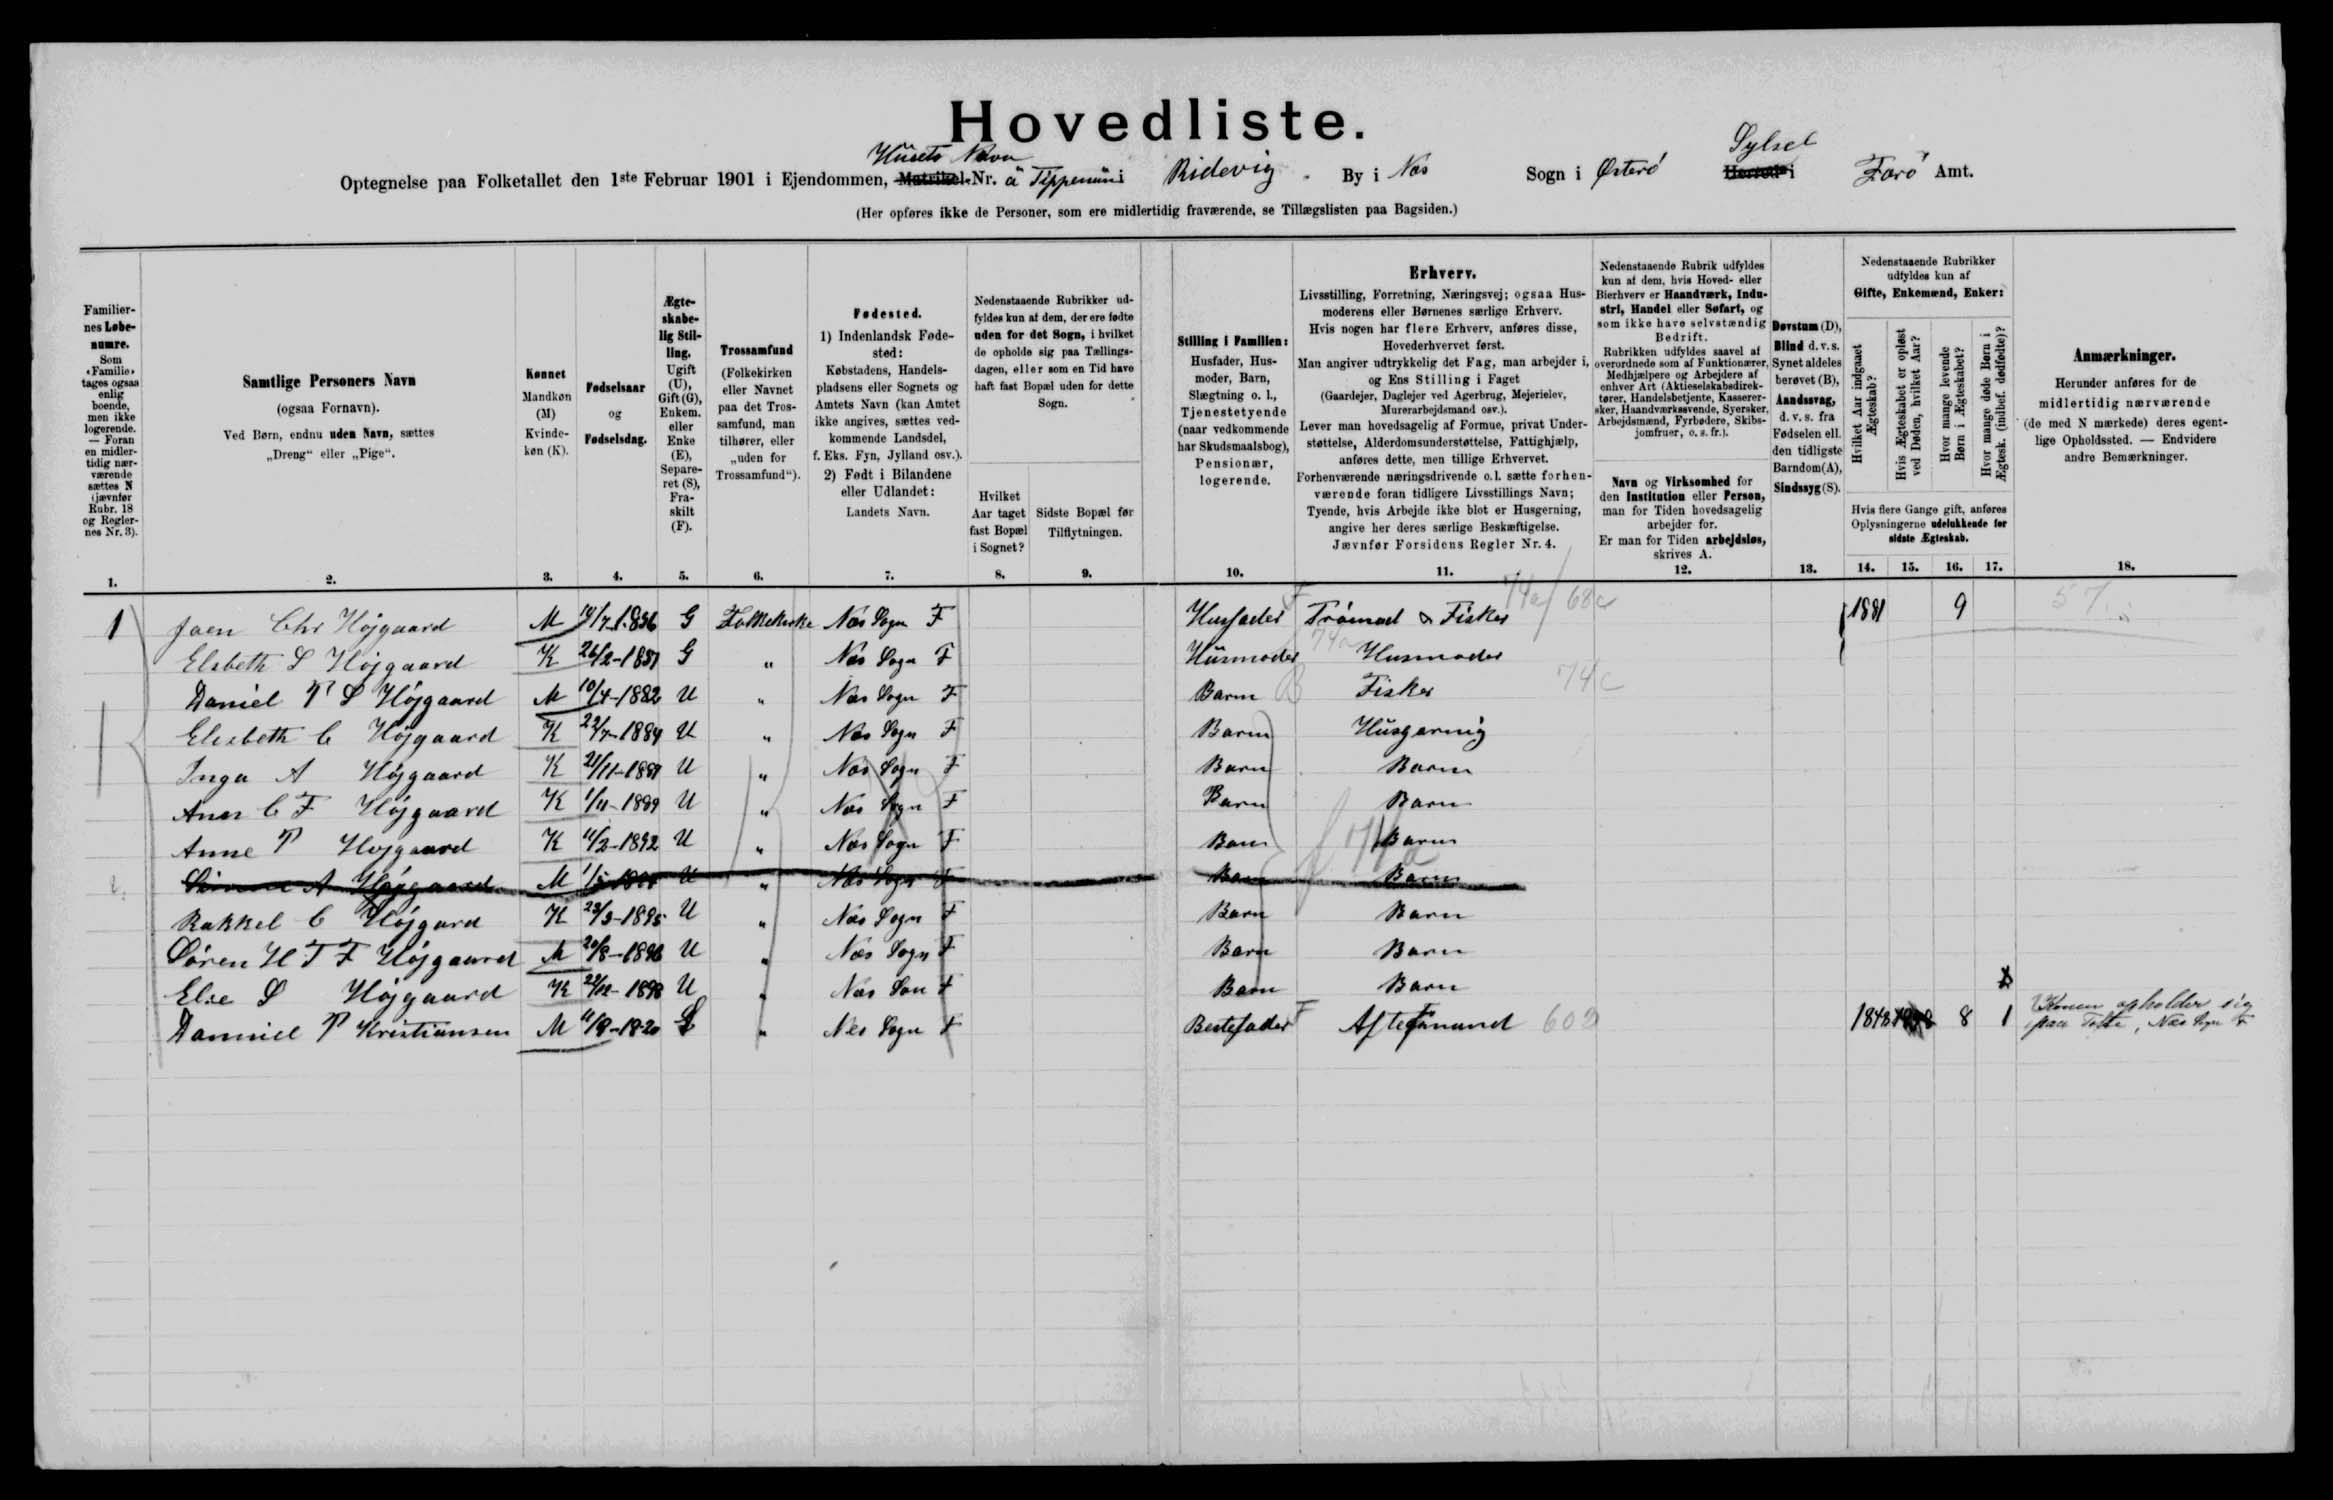 Hovedliste.
Husets Navn Sysel
Optegnelse paa Folketallet den 1ste Februar 1901 i Ejendommen, Matrikel-Nr. å Tippenum i Ridevig By i Næs Sogn i Østerö Herred i Færö Amt.
(Her opføres ikke de Personer, som ere midlertidig fraværende, se Tillægslisten paa Bagsiden.)
Familiernes Løbenumre.
Som «Familie» tages ogsaa enlig boende, men ikke logerende. — Foran en midlertidig nærværende sættes N (jævnfør Rubr. 18 og Reglernes Nr. 3).
Samtlige Personers Navn
(ogsaa Fornavn).
Ved Børn, endnu uden Navn, sættes
„Dreng“ eller „Pige“.
Kønnet
Mandkøn (M)
Kvindekøn (K).
Fødselsaar
og
Fødselsdag.
Ægteskabelig Stilling.
Ugift (U), Gift (G), Enkem. eller Enke (E), Separeret (S), Fraskilt (F).
Trossamfund
(Folkekirken eller Navnet paa det Trossamfund, man tilhører, eller „uden for Trossamfund“).
Fødested.
1) Indenlandsk Fødested:
Købstadens, Handelspladsens eller Sognets og Amtets Navn (kan Amtet ikke angives, sættes vedkommende Landsdel, f. Eks. Fyn, Jylland osv.).
2) Født i Bilandene eller Udlandet:
Landets Navn.
Nedenstaaende Rubrikker udfyldes kun af dem, der ere fødte uden for det Sogn, i hvilket de opholde sig paa Tællingsdagen, eller som en Tid have haft fast Bopæl uden for dette Sogn.
Hvilket Aar taget fast Bopæl i Sognet?
Sidste Bopæl før Tilflytningen.
Stilling i Familien:
Husfader, Husmoder, Barn, Slægtning o. l., Tjenestetyende (naar vedkommende har Skudsmaalsbog), Pensionær, logerende.
Erhverv.
Livsstilling, Forretning, Næringsvej; ogsaa Husmoderens eller Børnenes særlige Erhverv.
Hvis nogen har flere Erhverv, anføres disse, Hovederhvervet først.
Man angiver udtrykkelig det Fag, man arbejder i, og Ens Stilling i Faget
(Gaardejer, Daglejer ved Agerbrug, Mejerielev, Murerarbejdsmand osv.).
Lever man hovedsagelig af Formue, privat Understøttelse, Alderdomsunderstøttelse, Fattighjælp, anføres dette, men tillige Erhvervet.
Forhenværende næringsdrivende o. l. sætte forhenværende foran tidligere Livsstillings Navn;
Tyende, hvis Arbejde ikke blot er Husgerning, angive her deres særlige Beskæftigelse.
Jævnfør Forsidens Regler Nr. 4.
Nedenstaaende Rubrik udfyldes kun af dem, hvis Hoved- eller Bierhverv er Haandværk, Industri, Handel eller Søfart, og som ikke have selvstændig Bedrift.
Rubrikken udfyldes saavel af overordnede som af Funktionærer, Medhjælpere og Arbejdere af enhver Art (Aktieselskabsdirektører, Handelsbetjente, Kasserersker, Haandværkssvende, Syersker, Arbejdsmænd, Fyrbødere, Skibsjomfruer, o. s. fr.).
Navn og Virksomhed for den Institution eller Person, man for Tiden hovedsagelig arbejder for.
Er man for Tiden arbejdsløs, skrives A.
Døvstum (D), Blind d. v. s. Synet aldeles berøvet (B), Aandssvag, d. v. s. fra Fødselen ell. den tidligste Barndom (A), Sindssyg (S).
Nedenstaaende Rubrikker udfyldes kun af
Gifte, Enkemænd, Enker:
Hvilket Aar indgaaet Ægteskab?
Hvis Ægteskabet er opløst ved Døden, hvilket Aar?
Hvor mange levende Børn i Ægteskabet?
Hvor mange døde Børn i Ægtesk. (indbef. dødfødte)?
Hvis flere Gange gift, anføres Oplysningerne udelukkende for sidste Ægteskab.
Anmærkninger.
Herunder anføres for de midlertidig nærværende (de med N mærkede) deres egentlige Opholdssted. — Endvidere andre Bemærkninger.
1. 2. 3. 4. 5. 6. 7. 8. 9. 10. 11. 12. 13. 14. 15. 16. 17. 18.
1 Joen Chr Højgaard M 1856 G Folkekirke Næs Sogn F Husfader Trómand & Fisker 1881 9
Elsbeth S Højgaard K 26/2-1857 G " Næs Sogn F Husmoder Husmoder
Daniel P S Højgaard M 10/4-1882 U " Næs Sogn F Barn Fisker 74c
Elisbeth C Højgaard K 22/7-1884 U " Næs Sogn F Barn Husgerning
Inga A Højgaard K 21/11-1887 U " Næs Sogn F Barn Barn
Anna C F Højgaard K 1/11-1889 U " Næs Sogn F Barn Barn
Anne P Højgaard K 11/2-1892 U " Næs Sogn F Barn Barn
A Højgaard M U " Næs Sogn F Barn Barn
Rakkel C Højgard K 23/3-1895 U " Næs Sogn F Barn Barn
Sören H J F Højgaard M 20/8-1896 U " Næs Sogn F Barn Barn
Else S Højgaard K 1898 U " Næs Son F Barn Barn
Danniel P Kristiansen M 11/8-1820 G " Nes Sogn F Bestefader Aftegtsmand 602 1848 8 1 Konen opholder sig
paa Tofte, Næs Sogn F